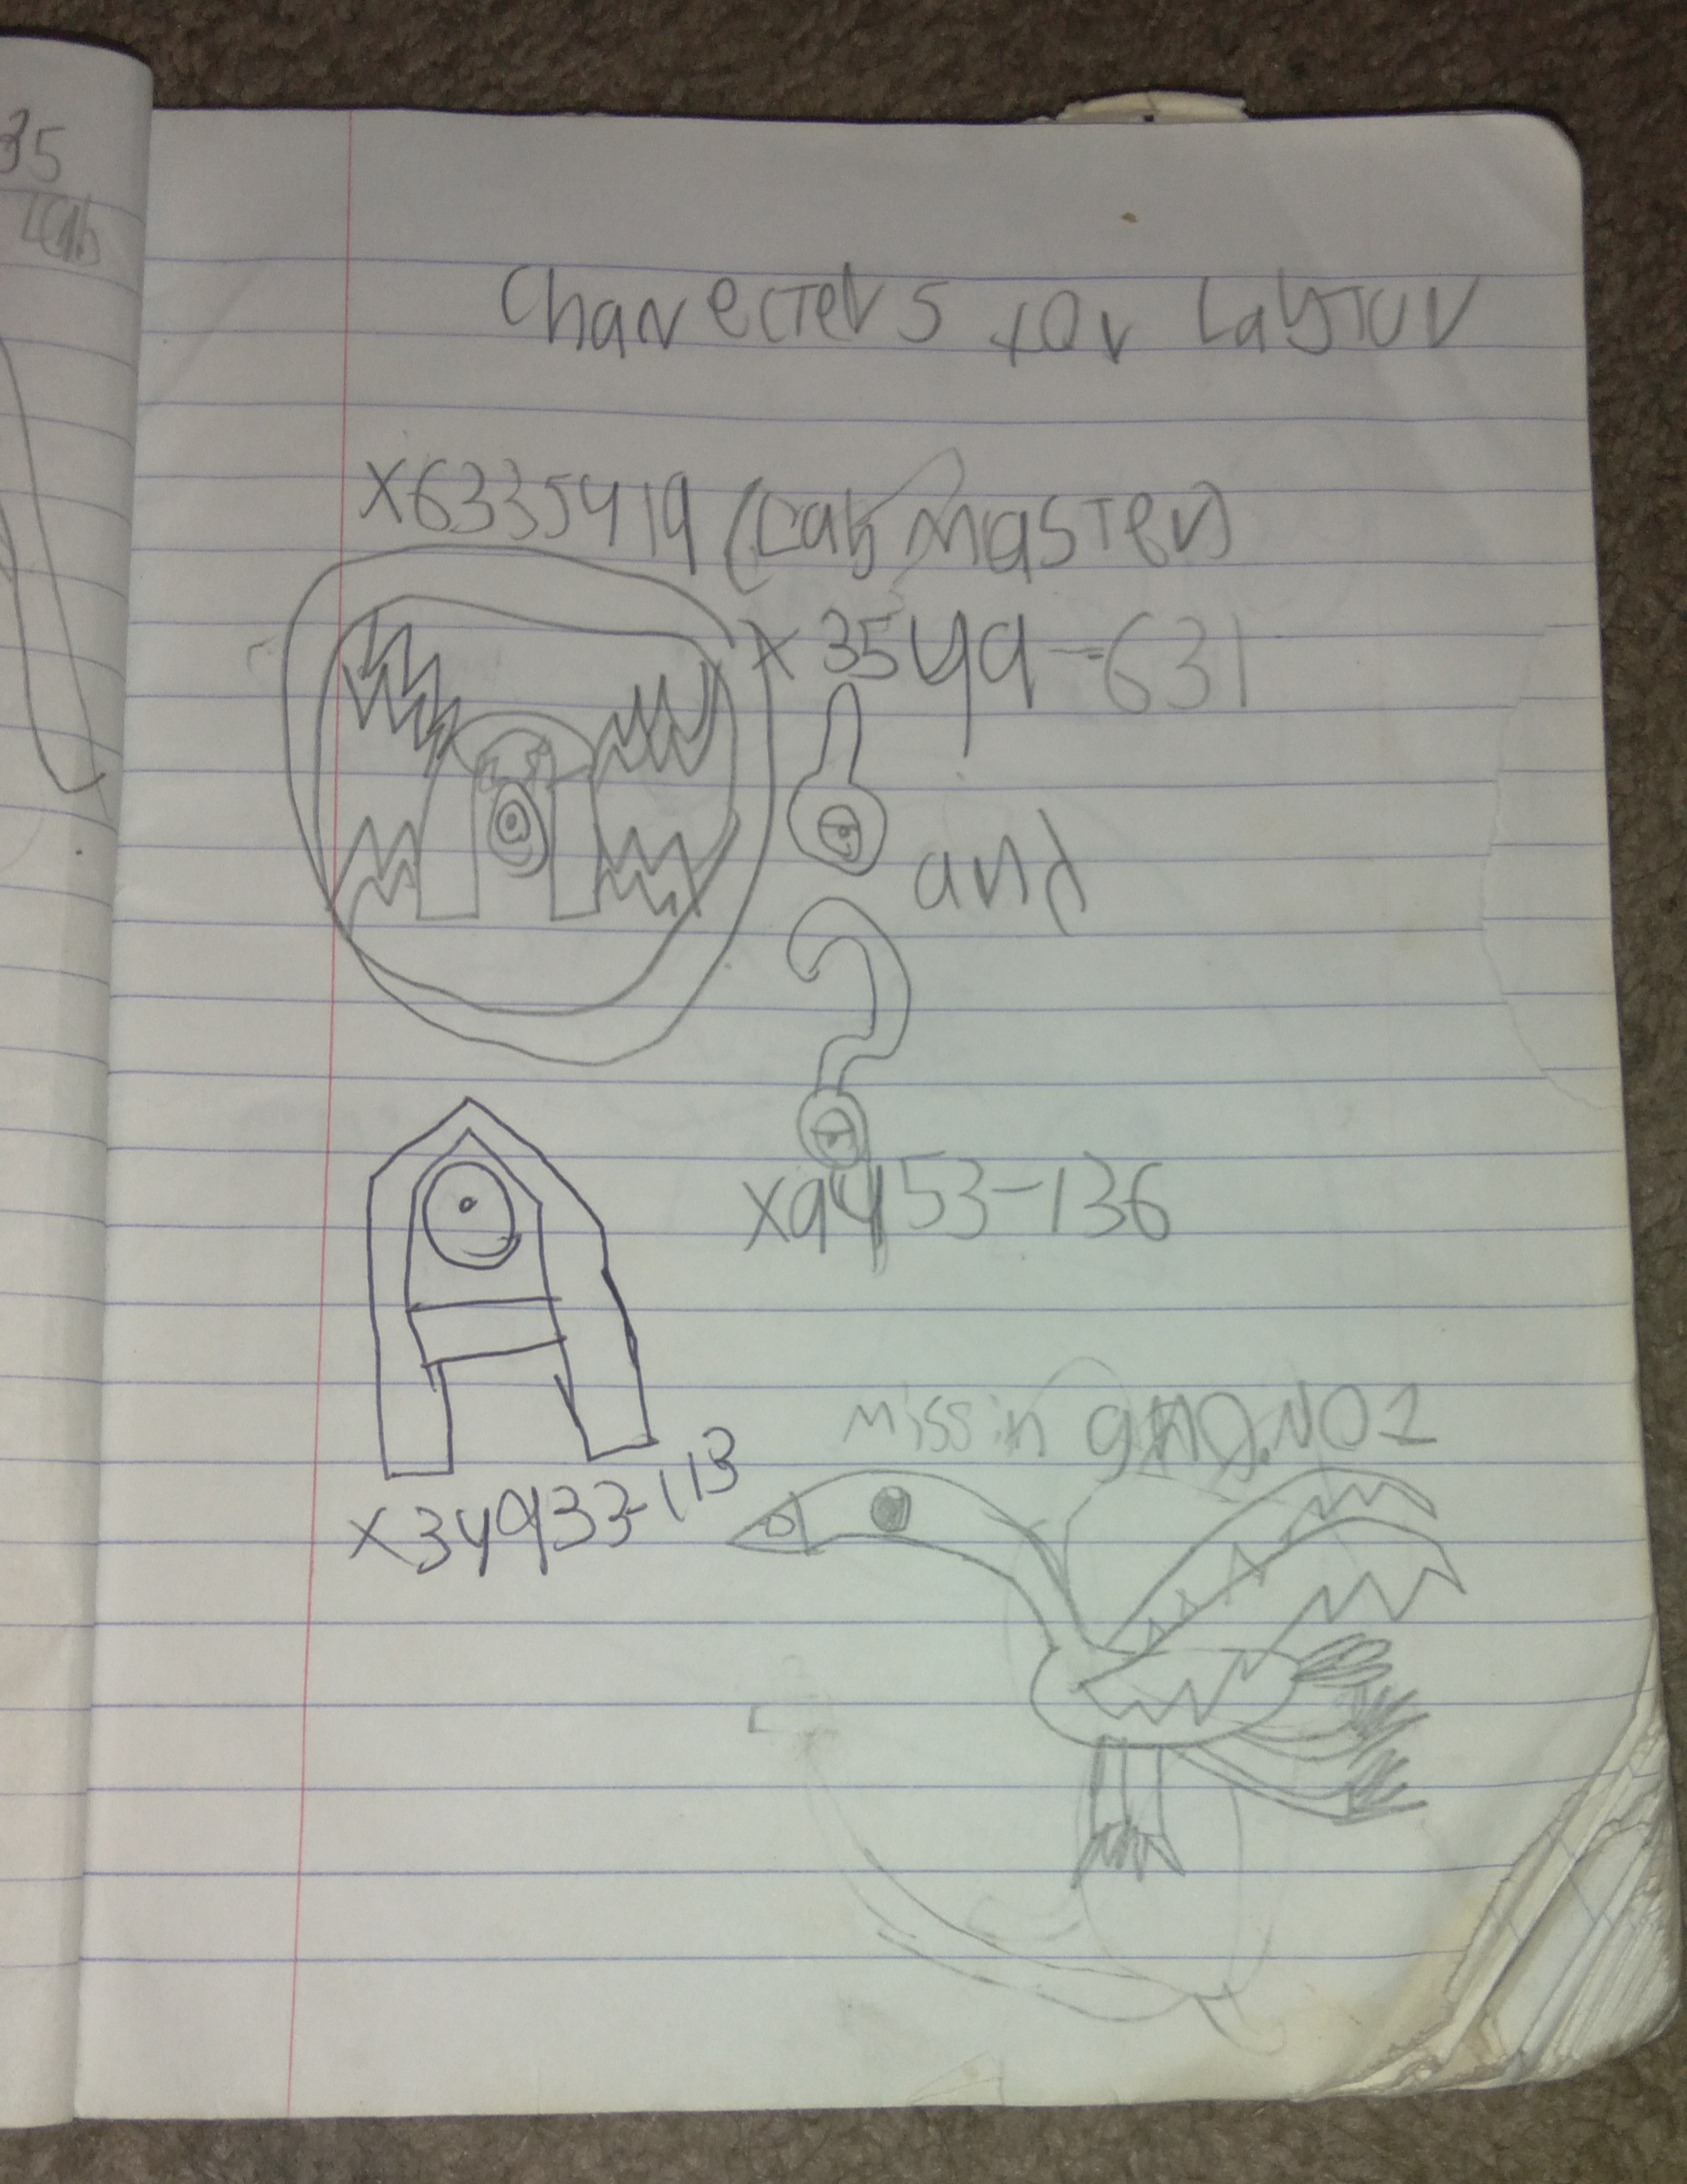 35
Lab
Charecters for Laytur
X6335419 (Lab master)
X3549-631
and
X9453-136
X34933-113
missin gno.NO2